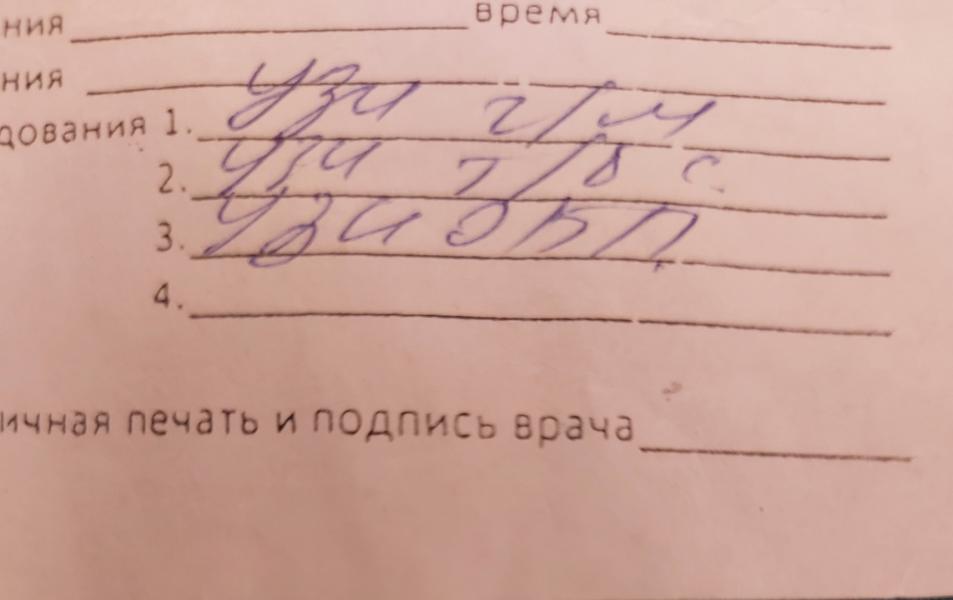 ния ____ время ____
ния ____
дования 1. УЗИ г/м
2. УЗИ т/б с.
3. УЗИ ОБП
4. ____
ичная печать и подпись врача ____